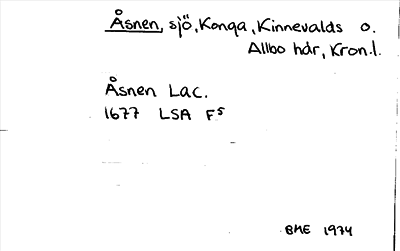 Åsnen, sjö, Konga, Kinnevalds o.
Allbo hdr, Kron.l.
Åsnen Lac.
1677 LSA F5
BHE 1974